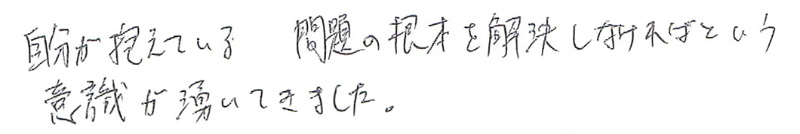 自分が抱えている　問題の根本を解決しなければという
意識が湧いてきました。